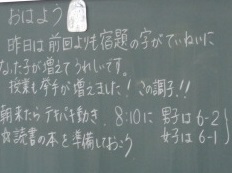 おはよう
昨日は前回よりも宿題の字がていねいに
なった子が増えてうれしいです。
授業も挙手が増えました！この調子!!
朝来たら テキパキ動き、8:10に 男子は6-2
☆読書の本を準備しておこう 女子は6-1